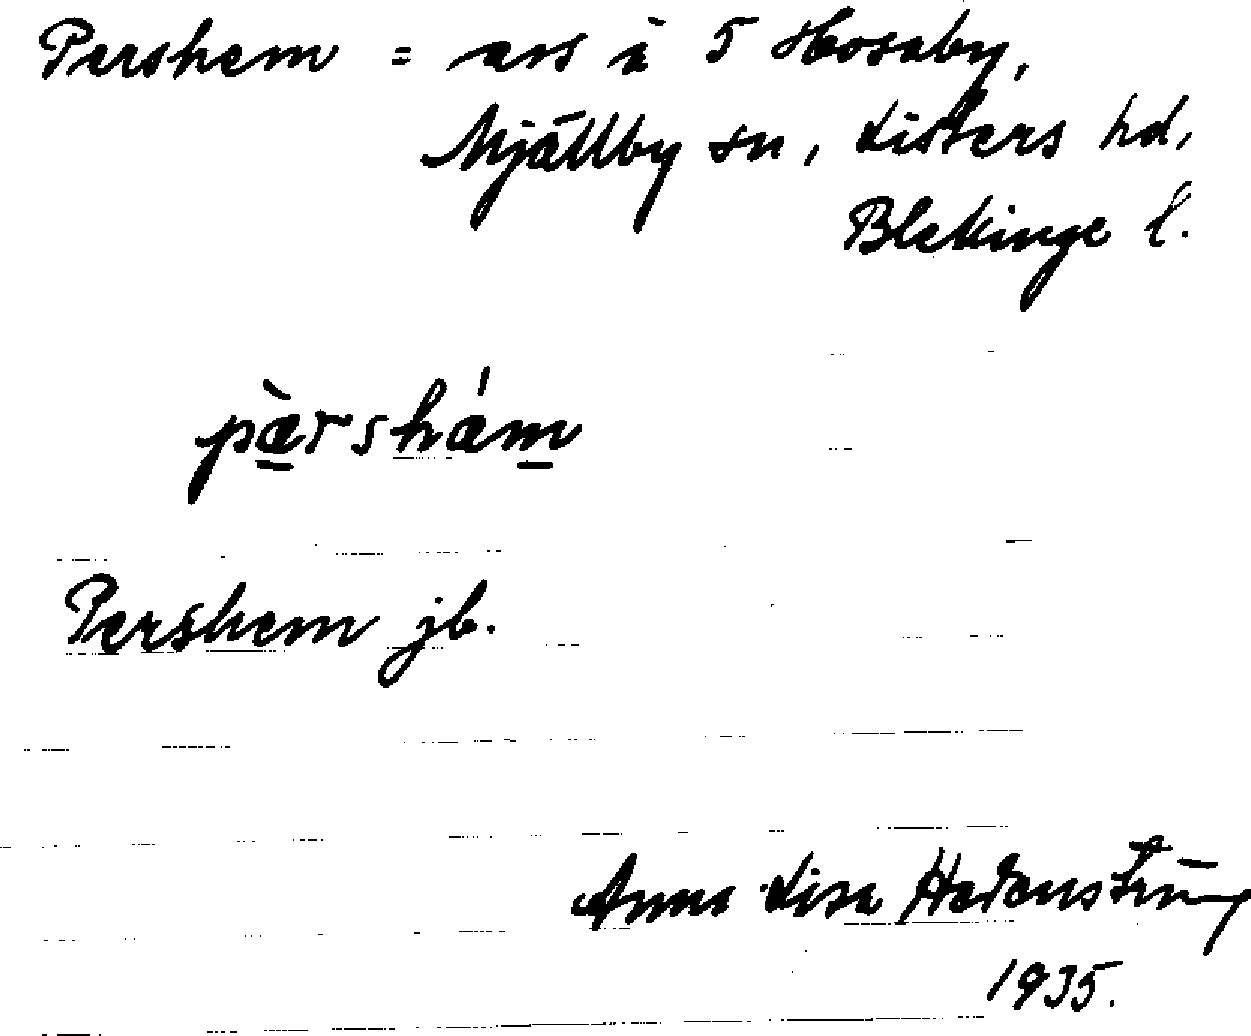 Pershem = avs å 5 Hosaby,
Mjällby sn, Listers hd,
Blekinge l.
pæ̀rshám
Pershem jb.
Anna Lisa Hedenström
1935.